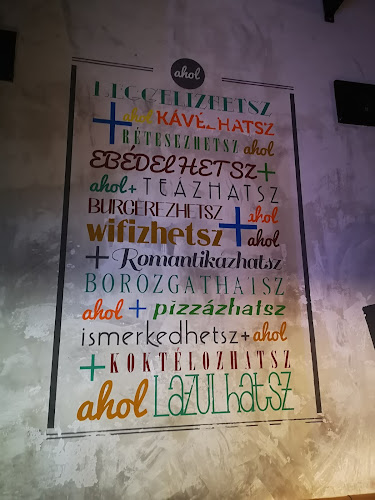 ahol
REGGELIZHETSZ
+ ahol KÁVÉZHATSZ
RÉTESEZHETSZ ahol
EBÉDELHETSZ+
ahol+ TEÁZHATSZ
BURGEREZHETSZ + ahol
wifizhetsz ahol
+ Romantikázhatsz
BOROZGATHATSZ
ahol + pizzázhatsz
ismerkedhetsz+ahol
+ KOKTÉLOZHATSZ
ahol LAZULhATSZ